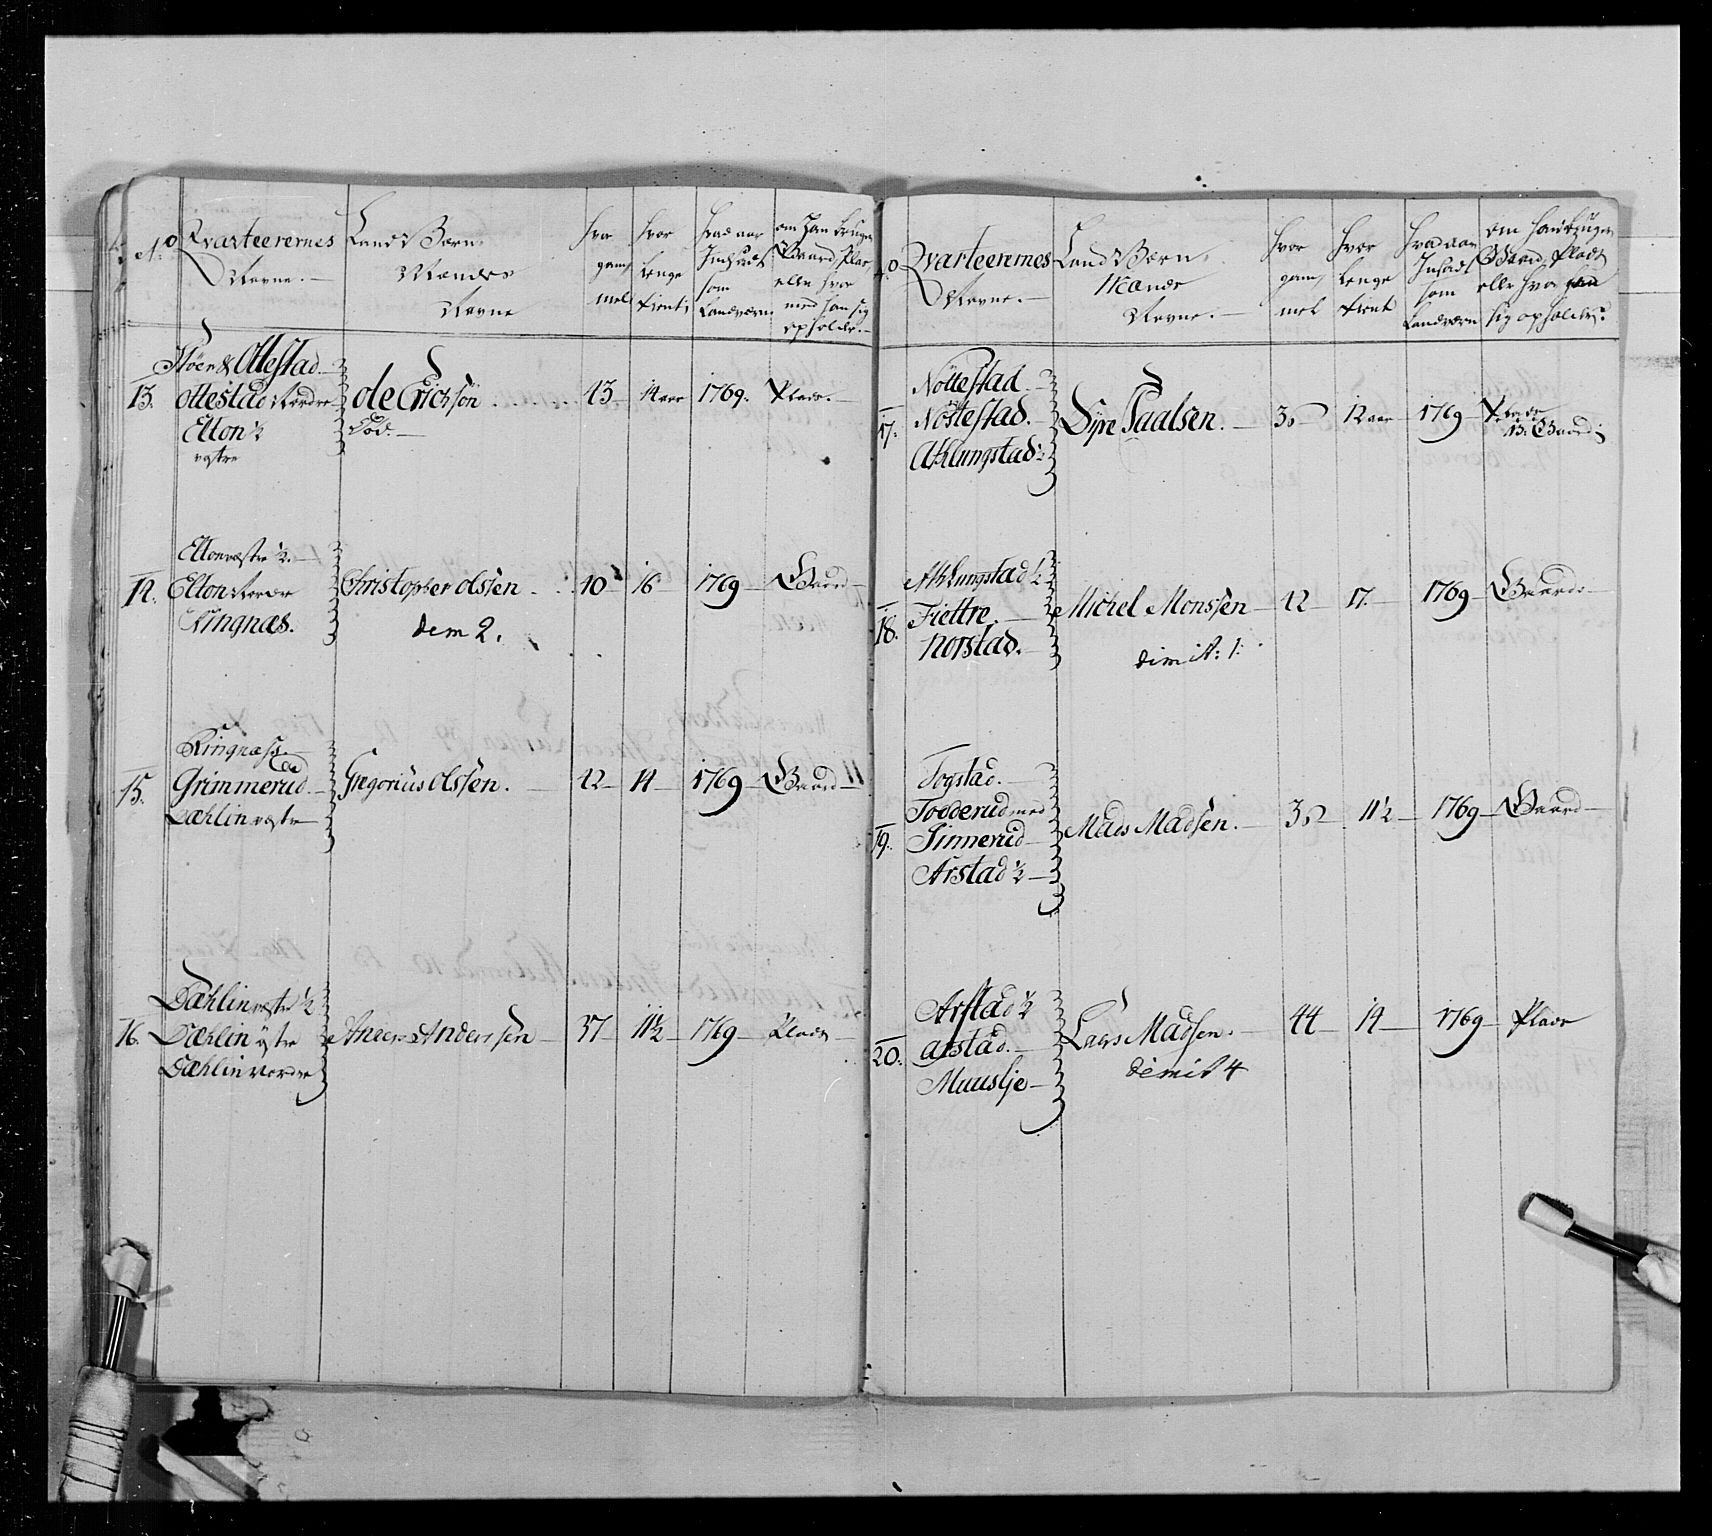 No
Qvarteerernes
Navne.
Land Værn
Mænds
Navne
hvor
gam,
mel
hvor
lenge
tient
hvad aar
Indsadt
som
Landværn
om han bruger
Gaard, Plas
eller hvor
med han sig
opholder.
13.
Höer & Ottestad
Ottestad Nordre
Elton ½
vestre
Ole Erichsön
död.
43
14 aar
1769.
Plads.
14.
Elton vestre ½.
Elton Nordre
Ringnæs.
Christopher Olssen
dem 2.
40
16
1769
Gaard
15.
Ringnæss.
Grimmerud
Dæhlin vestre
Gregorius Olssen.
42
14
1769
Gaard
16.
Dæhlin vestre ½
Dæhlin östre
Dæhlin Nordre
Anders Anderssen
37
11½
1769
Plads
No
Qvarteerernes
Navne.
Land Værn
Mænds
Navne.
hvor
gam,
mel
hvor
lenge
tient
hvad aar
Insadt
som
Landværn
om han bruger
Gaard, Plads
eller hvor han
sig opholder.
17.
Nöttestad
Nöttestad.
Ahlungstad ½
Syver Paalsen.
12 aar
1769
Plads
Gaard
18.
Ahlungstad ½
Fiettre
Norstad.
Michel Monssen
dimit: 1:
42
17.
1769
Gaard
19.
Togstad.
Todderud med
Finnerud
Arstad ½
Mads Madsen.
11½
1769
Gaard
20.
Arstad ½
Arstad.
Muuslje
Lars Madsen.
dimit 4
44
14
1769
Plads